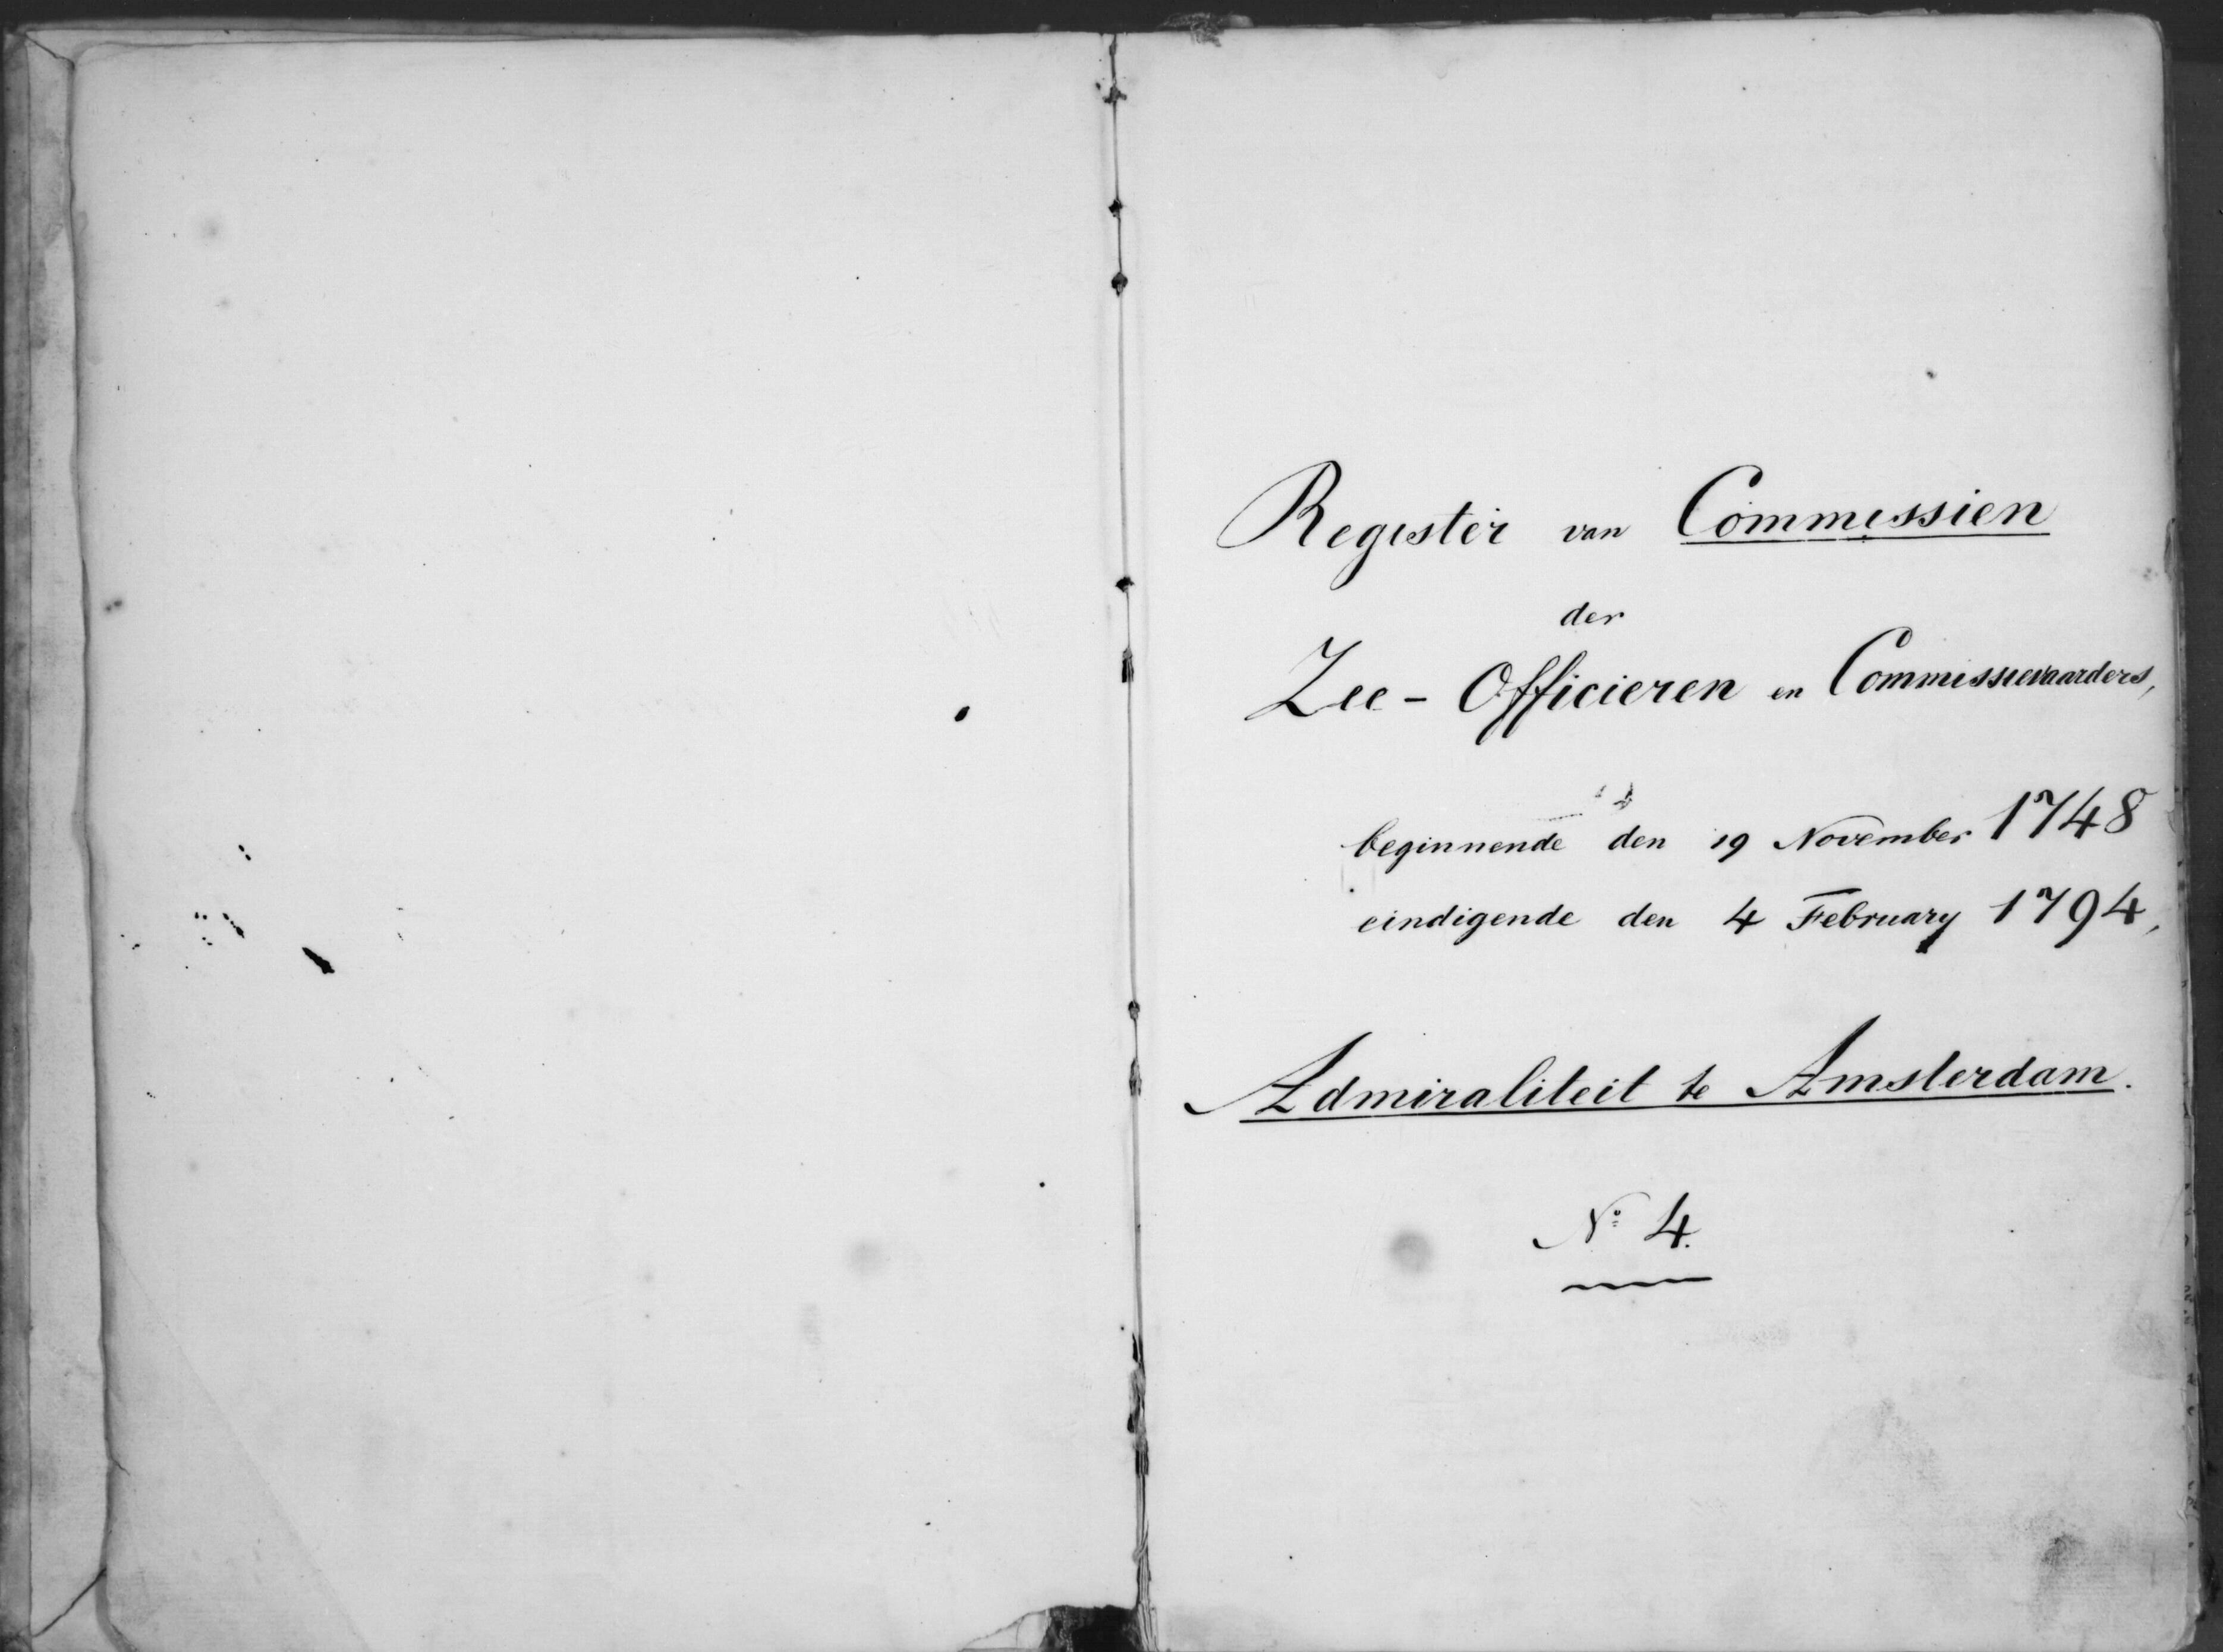 Register van Commissien
der
Zee - Officieren en Commissievaarders,
beginnende den 19 November 1748
eindigende den 4 February 1794,
Admiraliteit te Amsterdam.
No 4.